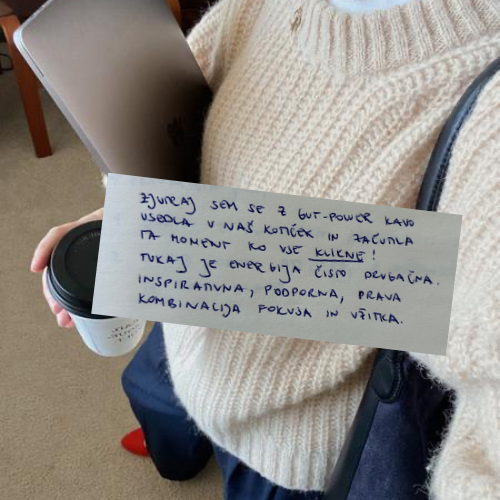 ZJUTRAJ SEM SE Z GUT-POWER KAVO
USEDLA V NAŠ KOTIČEK IN ZAČUTILA
TA MOMENT KO VSE KLIKNE!
TUKAJ JE ENERGIJA ČISTO DRUGAČNA.
INSPIRATIVNA, PODPORNA, PRAVA
KOMBINACIJA FOKUSA IN UŽITKA.